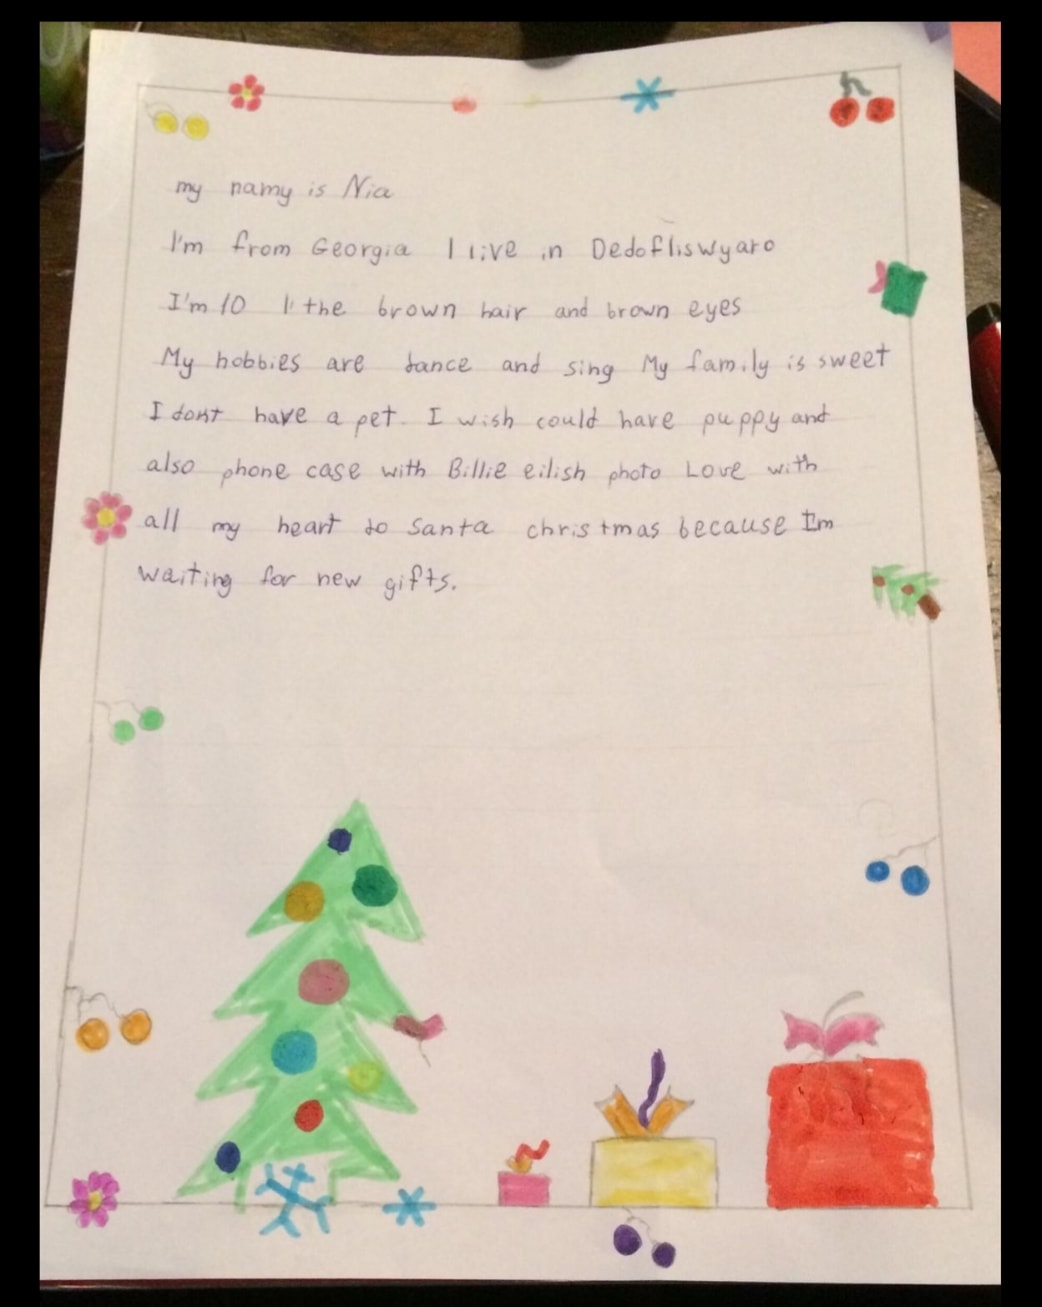 my namy is Nia
I'm from Georgia I live in Dedofliswyaro
I'm 10 I' the brown hair and brown eyes
My hobbies are dance and sing My family is sweet
I dont have a pet. I wish could have puppy and
also phone case with Billie eilish photo Love with
all my heart to Santa christmas because I'm
waiting for new gifts.